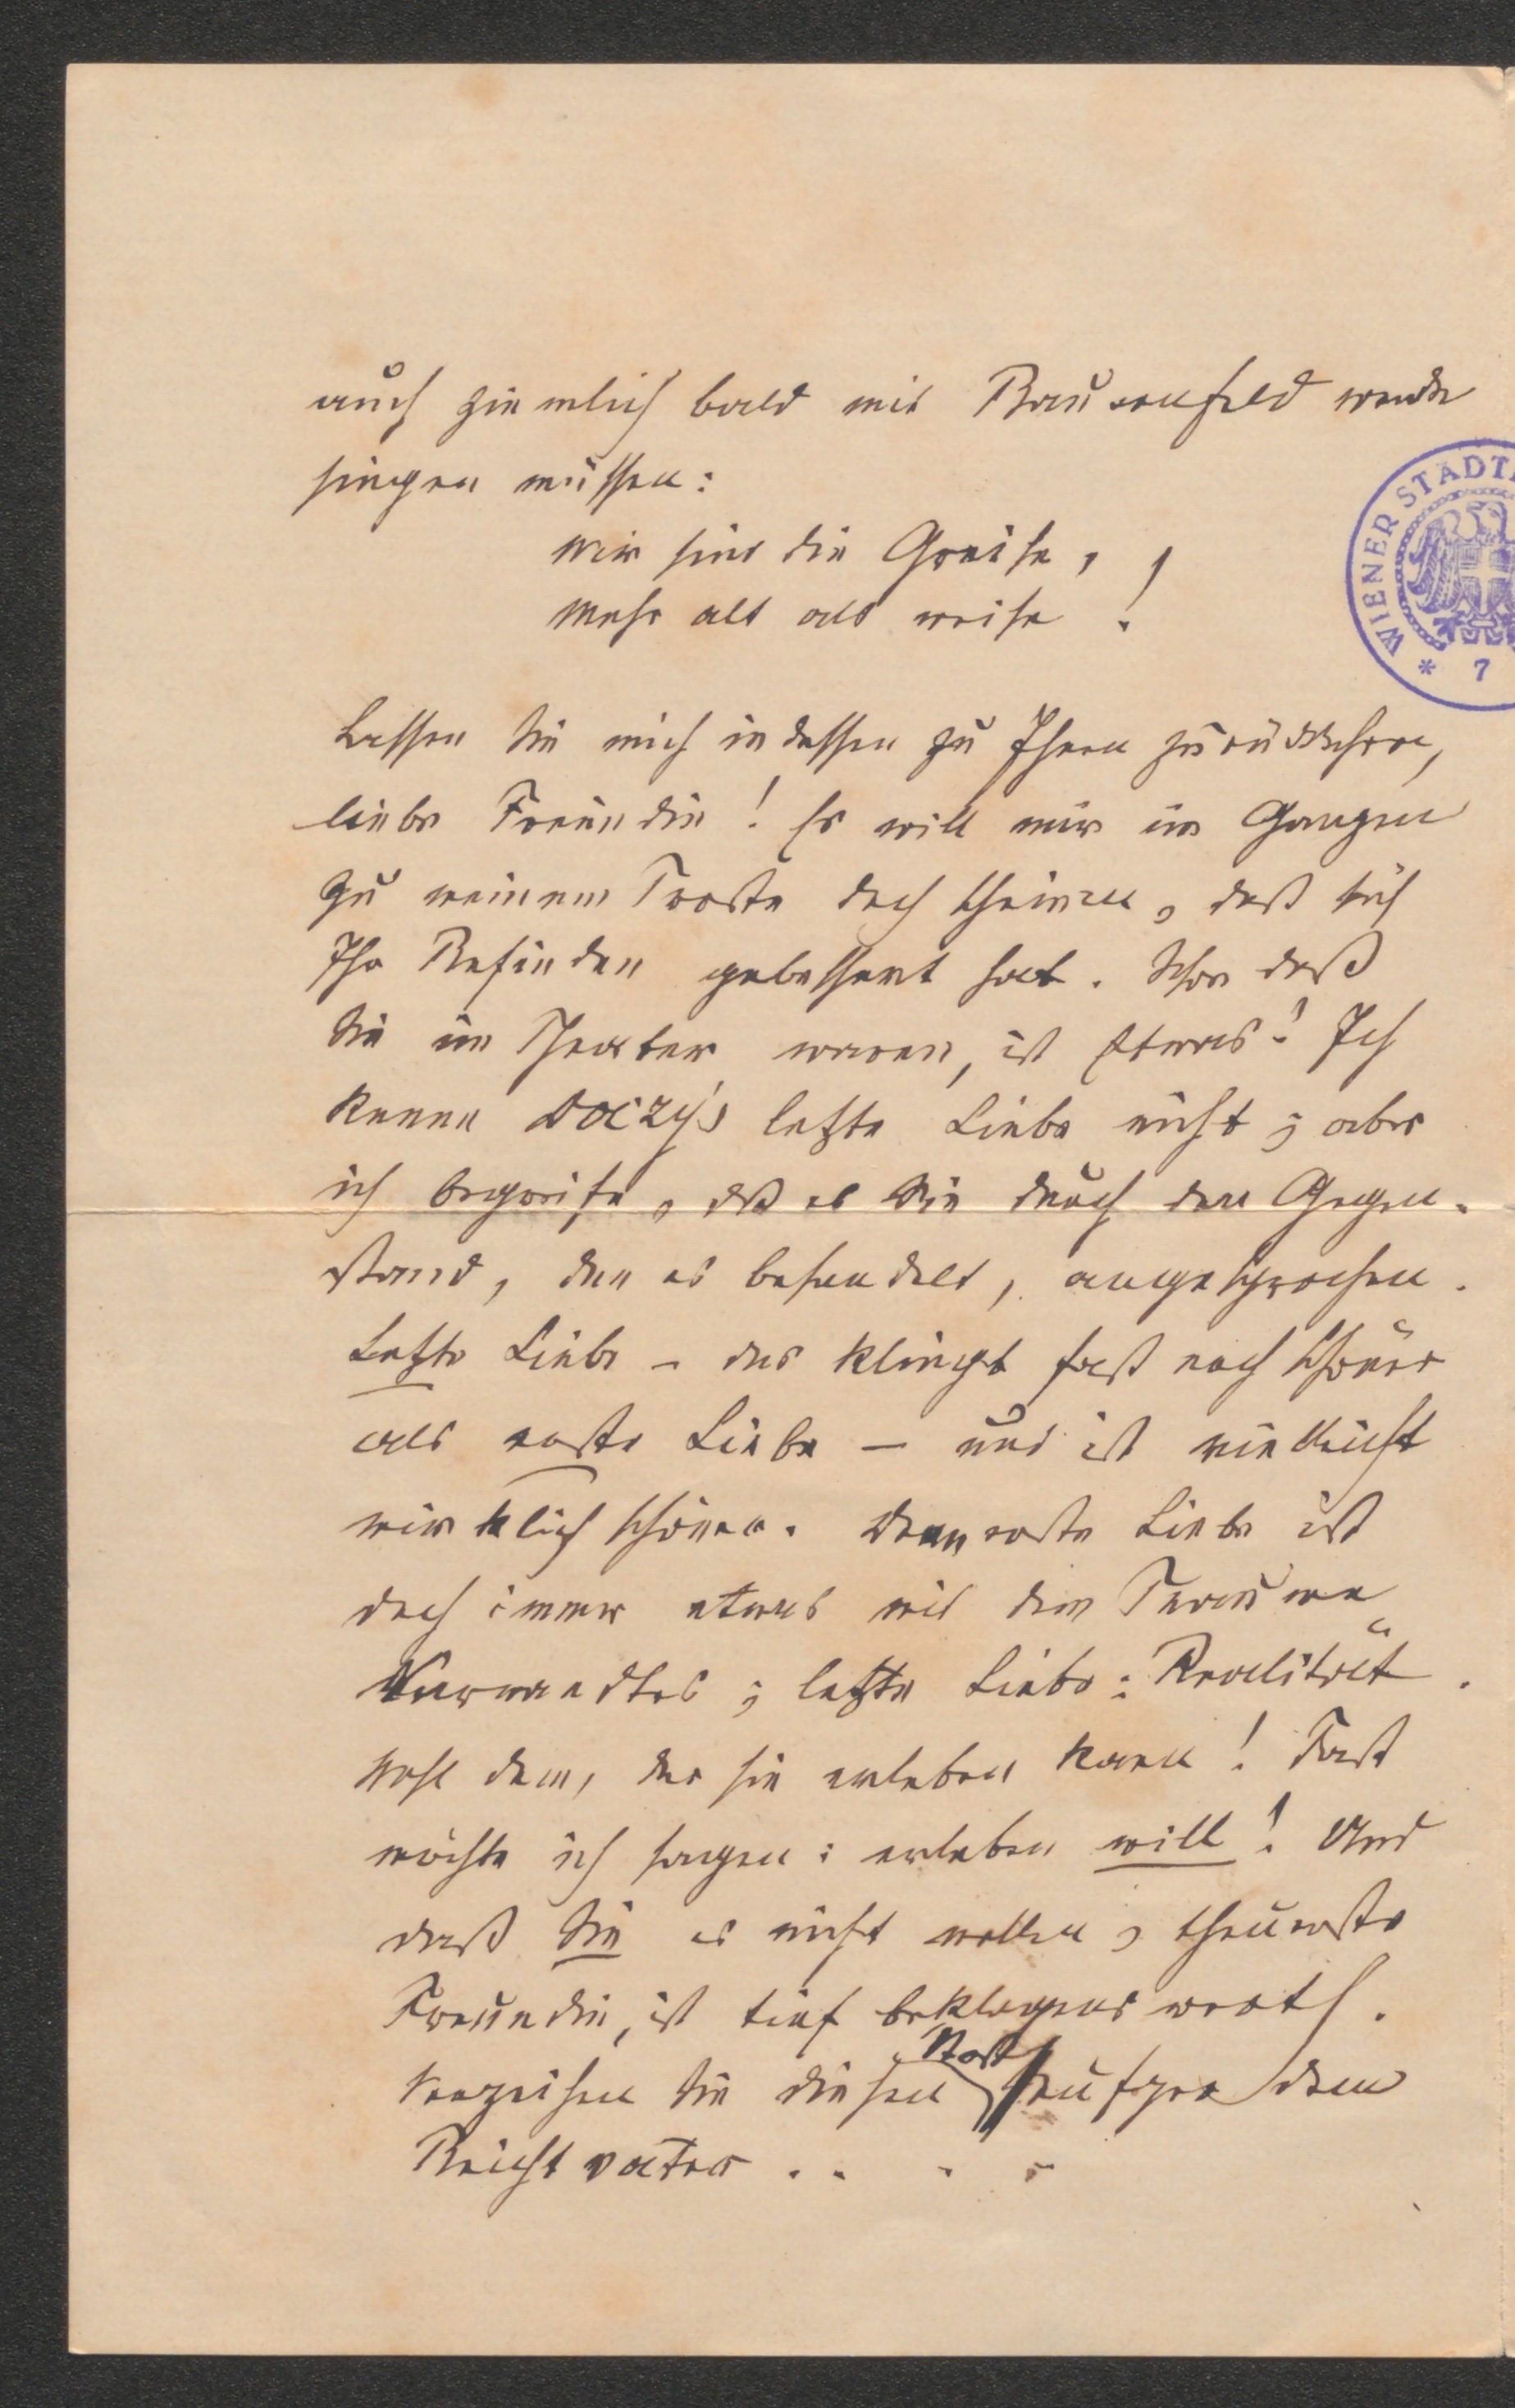 auch ziemlich bald mit Bauernfeld werde
singen müssen:
Wir sind die Greise,
Mehr alt als weise!
Lassen Sie mich indessen zu Ihnen zurückkehren,
liebe Freundin! Es will mir im Ganzen
zu meinem Troste doch scheinen, daß sich
Ihr Befinden gebessert hat. Schon daß
Sie im Theater waren, ist Etwas! Ich
kenne Dóczy's letzte Liebe nicht; aber
ich begreife, daß es Sie durch den Gegen-
stand, den es behandelt, angesprochen.
Letzte Liebe – das klingt fast noch schöner
als erste Liebe – und ist vielleicht
wirklich schöner. Denn erste Liebe ist
doch immer etwas mit dem Traume
Verwandtes; letzte Liebe: Realität.
Wohl dem, der sie erleben kann! Fast
möchte ich sagen: erleben will! Und
daß Sie es nicht wollen, theuerste
Freundin, ist tief beklagenswerth.
Verzeihen Sie diesen Stoßseufzer dem
Beichtvater . . . .
WIENER STÄDT
* 7